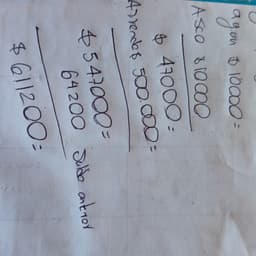 agua $ 10000=
Aseo $ 10000
$ 47000=
Arriendo $ 500.000=
$ 547000=
64200 Saldo anterior
$ 611200=